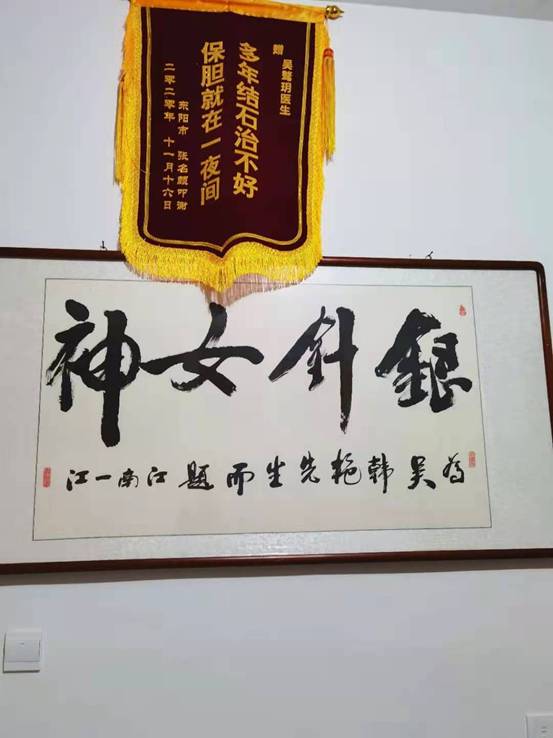 赠 吴玥医生
多年结石治不好
保胆就在一夜间
东阳市 张名赖叩谢
二零二零年 十一月十六日
銀針女神
为吴韩艳先生而题 江南一江